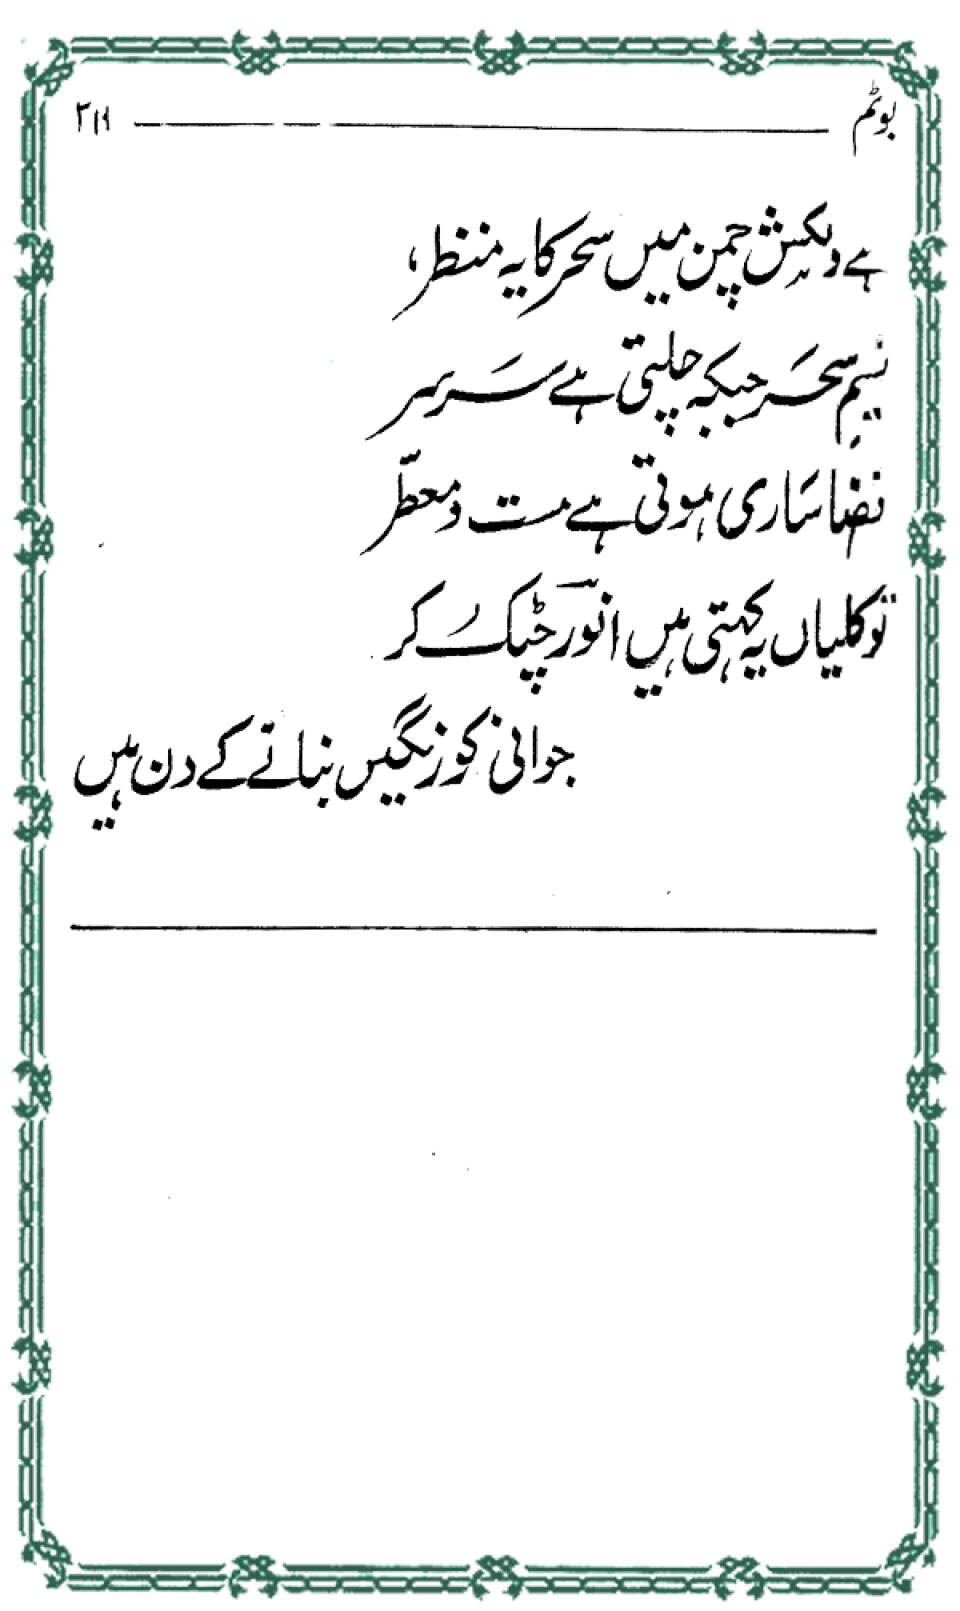 بوٹم ۲۱۱
ہے دلکش چمن میں سحر کا یہ منظر،
نسیمِ سحَر جبکہ چلتی ہے سَر سر
فضا سَاری ہوتی ہے مست و معطّر
تو کلیاں یہ کہتی ہیں انورؔ چٹک کر
جوانی کو رنگیں بنانے کے دن ہیں